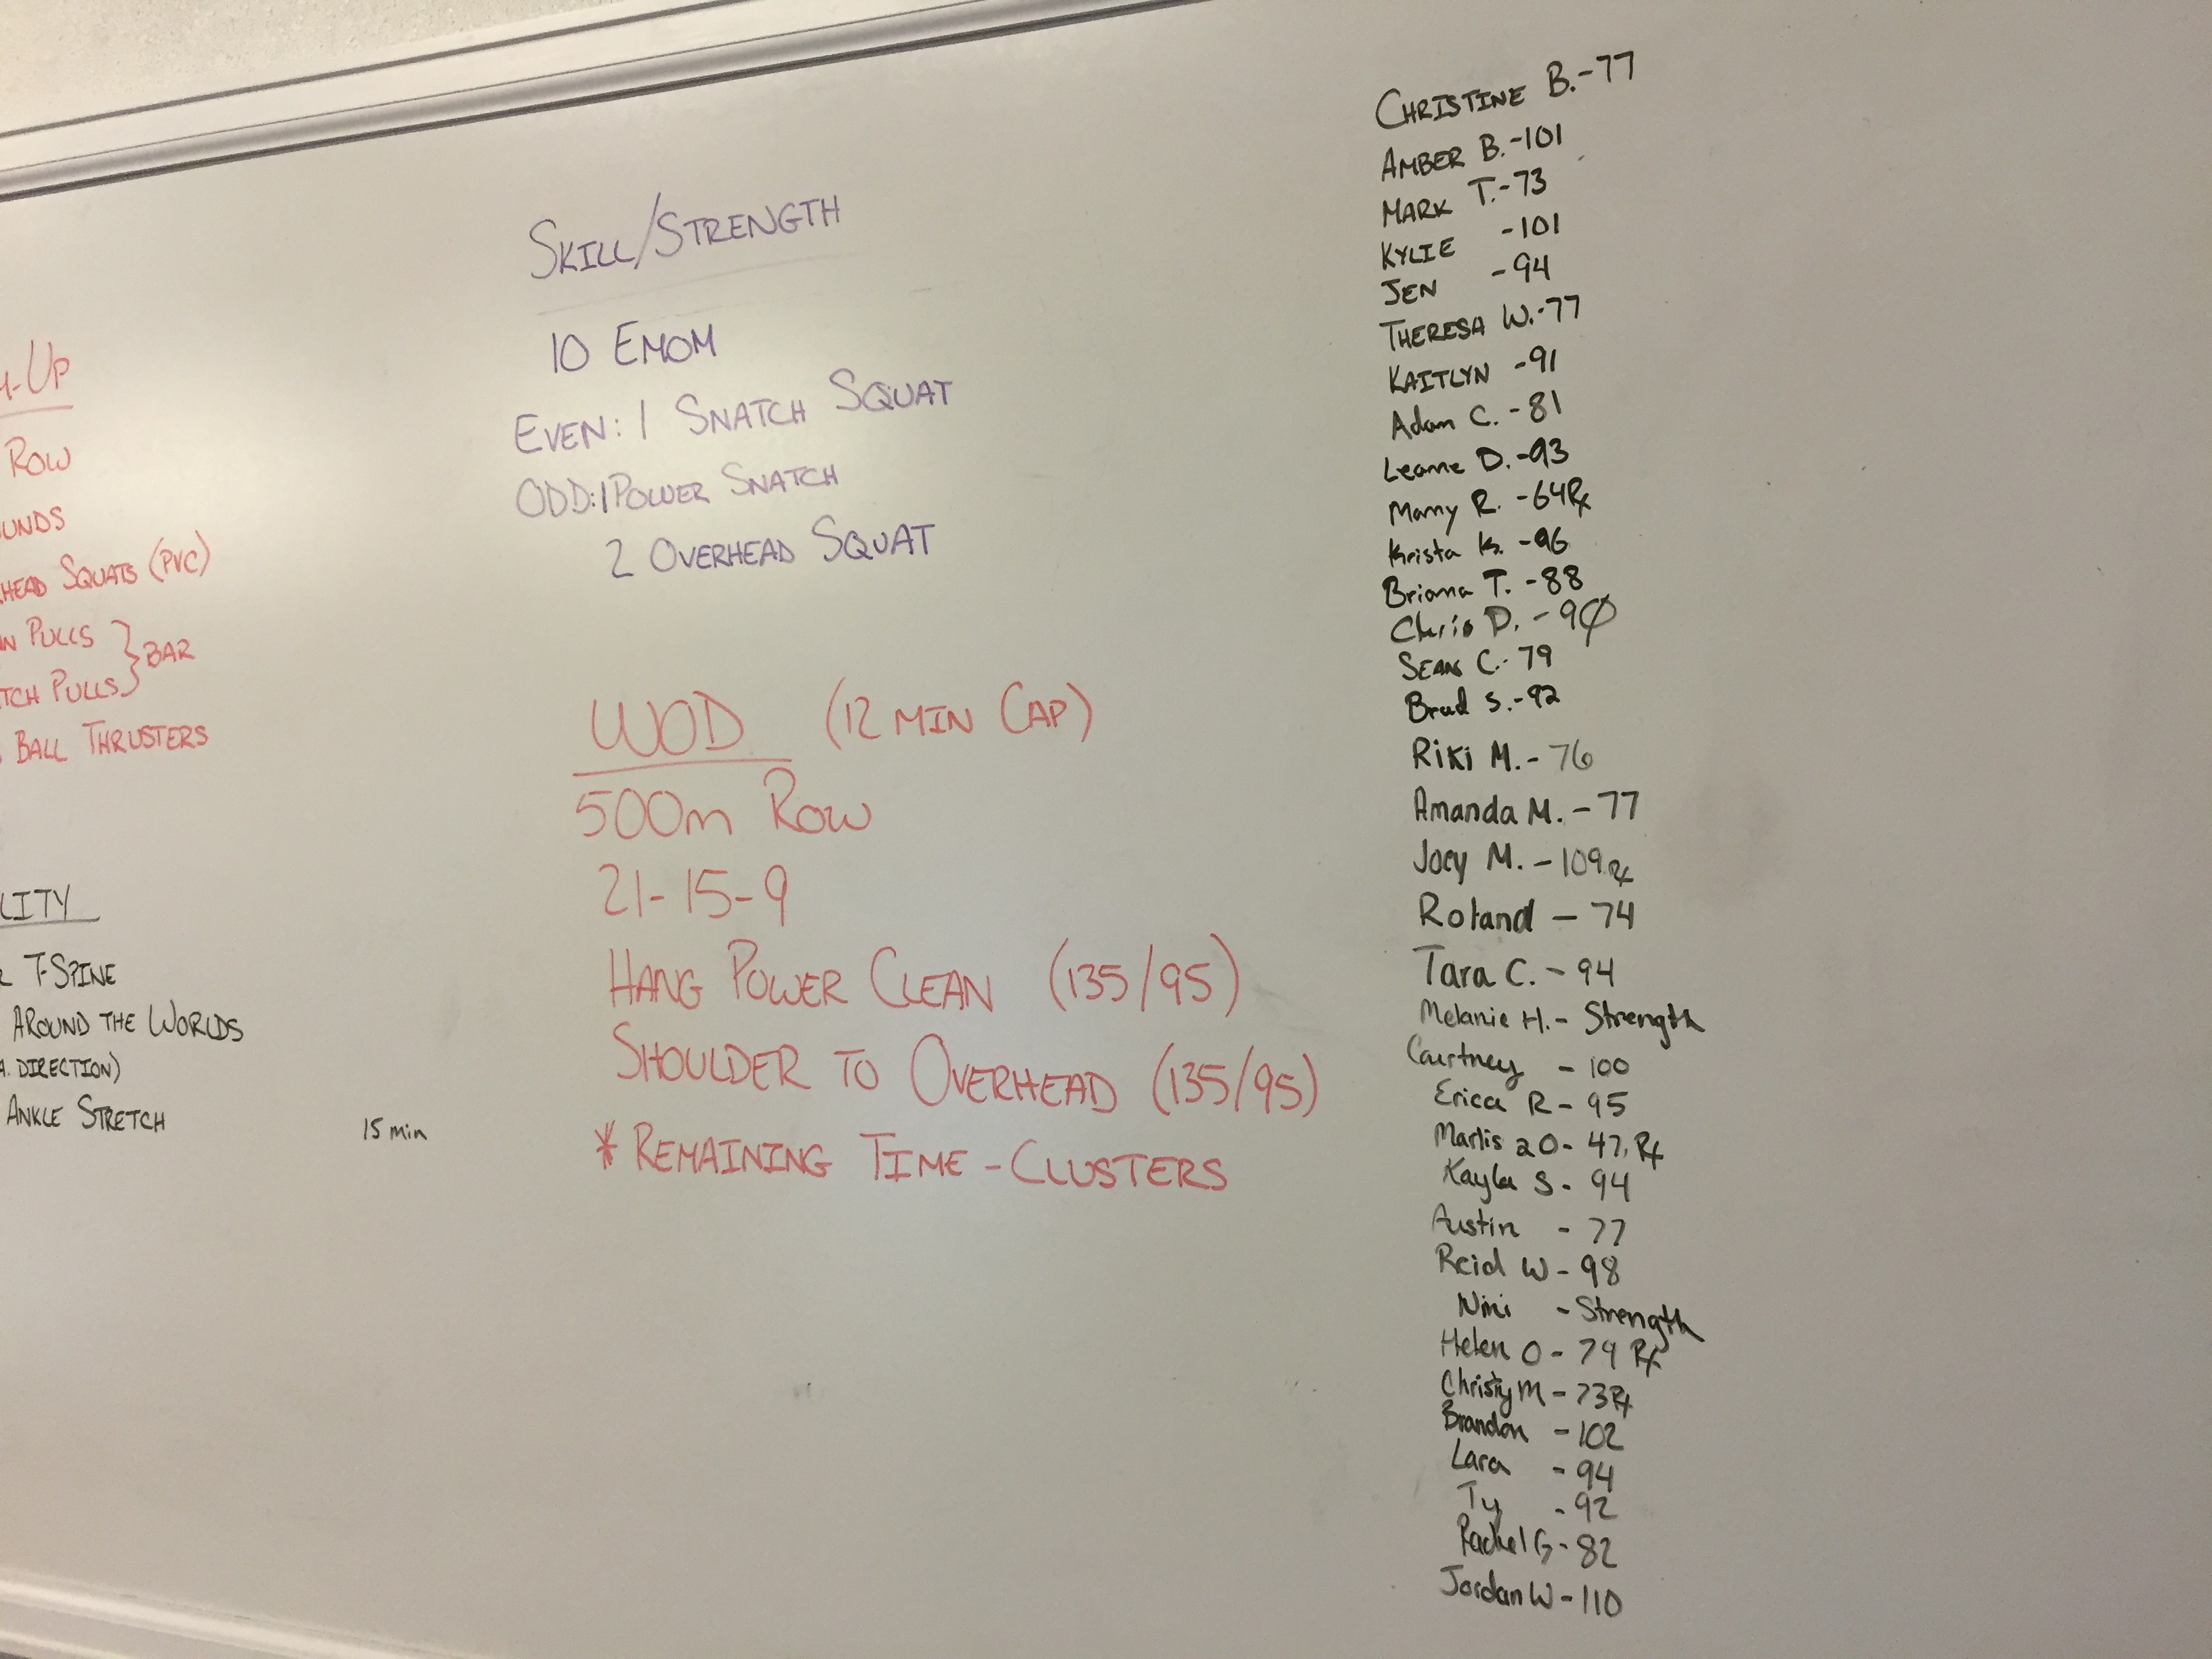 -UP
ROW
UNDS
HEAD SQUATS (PVC)
N PULLS
TCH PULLS } BAR
BALL THRUSTERS
LITY
T-SPINE
AROUND THE WORLDS
A. DIRECTION)
ANKLE STRETCH
15 min
SKILL/STRENGTH
10 EMOM
EVEN: 1 SNATCH SQUAT
ODD: 1 POWER SNATCH
2 OVERHEAD SQUAT
WOD (12 MIN CAP)
500m ROW
21-15-9
HANG POWER CLEAN (135/95)
SHOULDER TO OVERHEAD (135/95)
* REMAINING TIME - CLUSTERS
CHRISTINE B.-77
AMBER B.-101
MARK T.-73
KYLIE -101
JEN -94
THERESA W.-77
KAITLYN -91
Adam C. -81
Leanne D. -93
Manny R. -64Rx
Krista K. -96
Briana T. -88
Chris D. -90
SEAN C.- 79
Brad S.-92
Riki M.- 76
Amanda M. - 77
Joey M. - 109 Rx
Roland - 74
Tara C. - 94
Melanie H.- Strength
Courtney - 100
Erica R - 95
Marlis 20- 47, Rx
Kayla S - 94
Austin - 77
Reid W - 98
Nini - Strength
Helen O - 79 Rx
Christy M - 73Rx
Brandon - 102
Lara - 94
Ty - 92
Rachel G - 82
Jordan W - 110